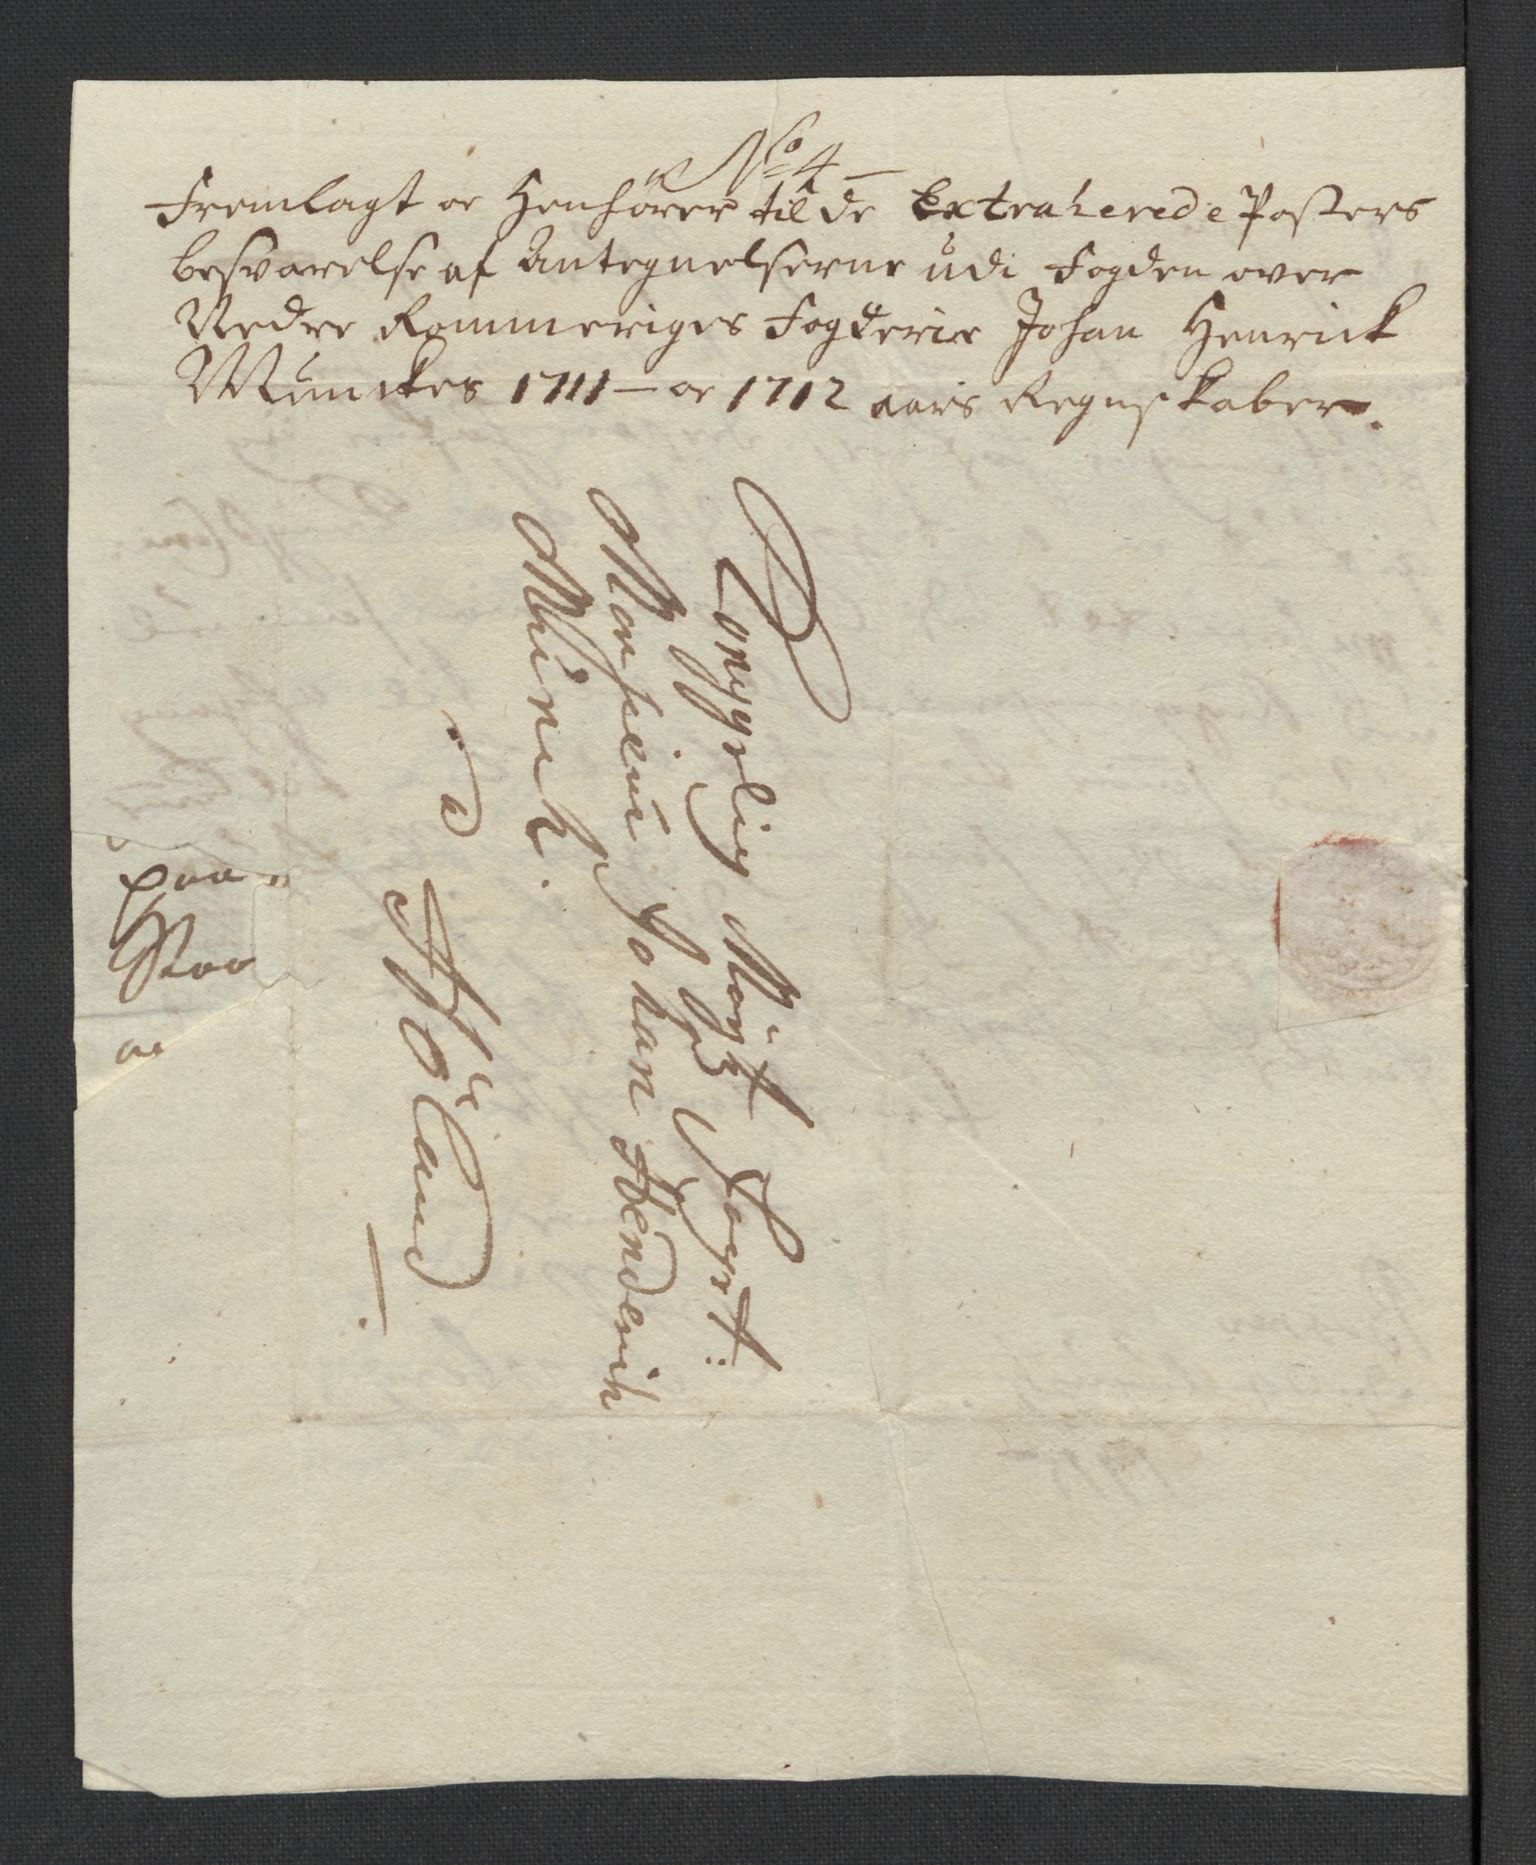 No 4
Fremlagt oc Henhører til de Extraherede Posters
besvarelse af Antegnelserne udi Fogden over
Nedre Rommeriges Fogderie Johan Henrick
Munckes 1711 – oc 1712 aars Regnskaber.
Kongerlig Mayt Fogt:
Monsieur Johan Henderich
Münch.
a
Höland
paa